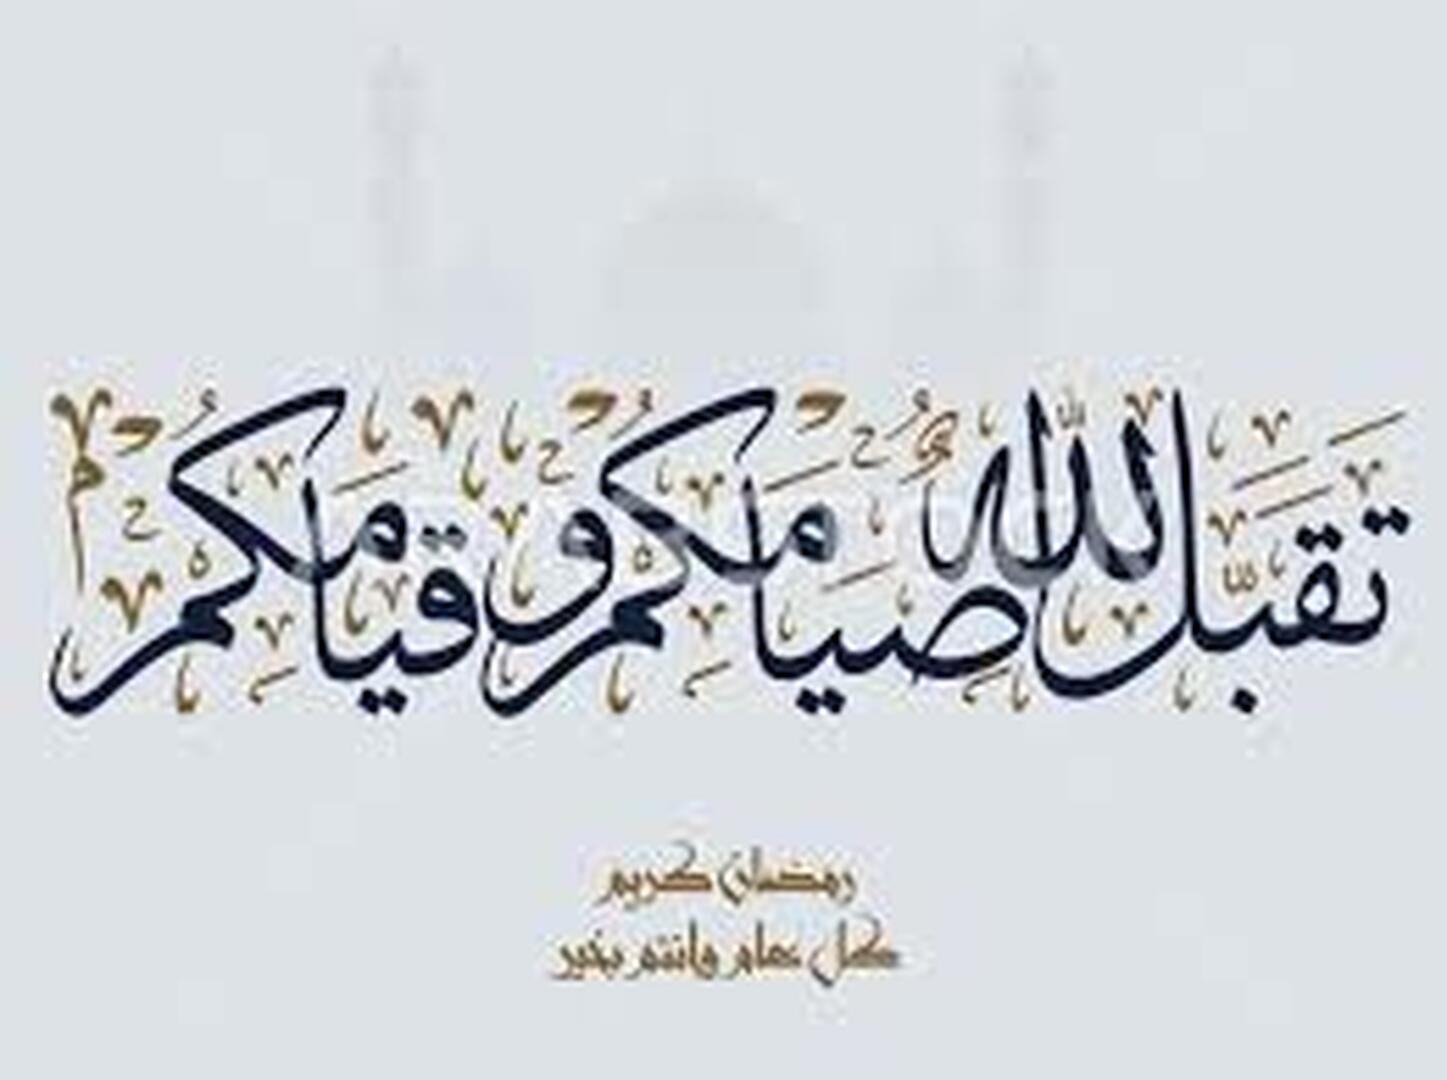 تقبل الله صيامكم وقيامكم
رمضان كريم
كل عام وانتم بخير